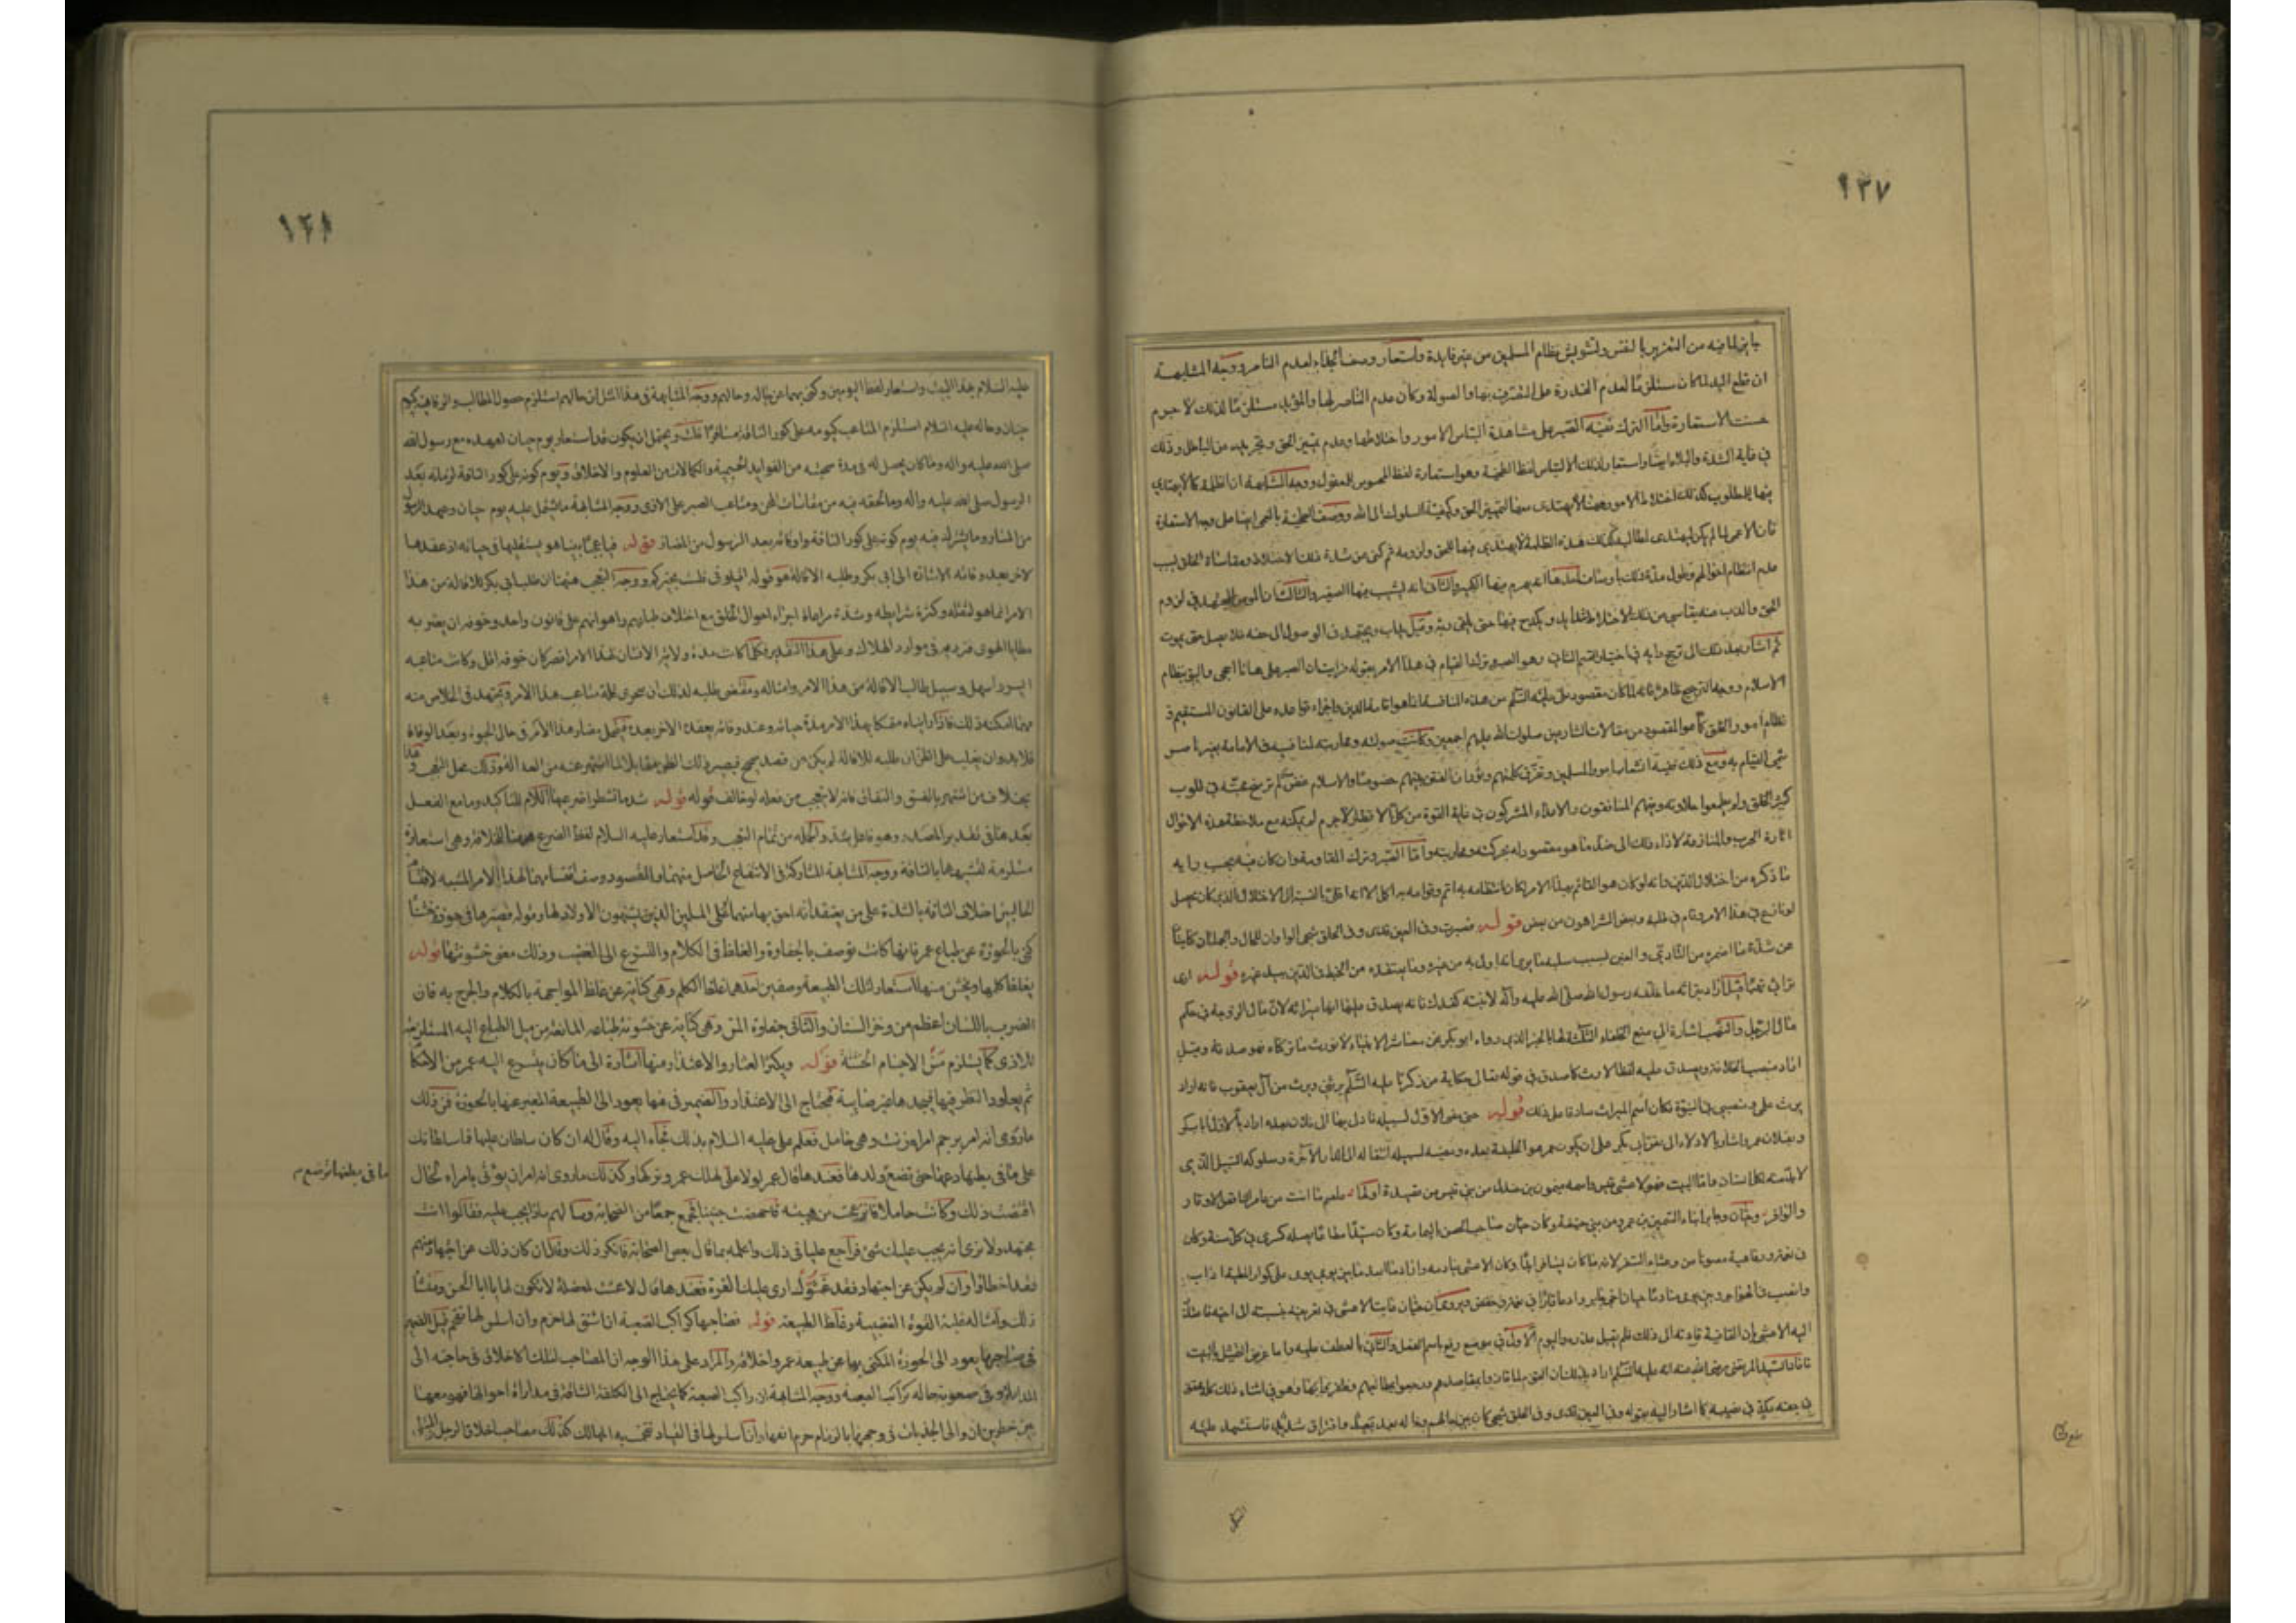 ١٣٧
من التغرير بالنفس وتشويش نظام المسلمين من غير فايدة واستعار وصف الجذاء لعدم الناصر ووجه المشابهة
ان قطع اليد لما كان مستلزما لعدم القدرة على التصرف بها والصولة وكان عدم الناصر لها والمؤيد مستلزما لذلك لا جرم
حسنت الاستعارة واما الترك ففيه الصبر على مشاهدة التباس الامور واختلاطها وعدم تمييز الحق وتجريده من الباطل وذلك
في غاية الشدة والبلاء ايضا واستعار لذلك الالتباس لفظ الطخية وهو استعارة لفظ المحسوس للمعقول ووجه المشابهة ان الظلمة كما لا يهتدى
فيها للمطلوب كذلك اختلاط الامور ههنا لا يهتدى معها لتمييز الحق وكيفية السلوك الى الله ووصف الطخية بالعمى ايضا على وجه الاستعارة
فان الاعمى لما لم يكن ليهتدى لمطالبه كذلك هذه الظلمة لا يهتدى فيها للحق ولزومه ثم كنى عن شدة ذلك الاختلاط ومقاساة الخلق بسبب
عدم انتظام احوالهم وطول مدة ذلك باوصاف احدها انه يهرم فيها الكبير والثاني انه يشيب فيها الصغير والثالث ان المومن المجتهد في لزوم
الحق والذب عنه يقاسى من ذلك الاختلاط شدايد ويكدح فيها حتى يلقى ربه وقيل يداب ويجتهد في الوصول الى حقه فلا يصل حتى يموت
ثم اشار بعد ذلك الى ترجيح رايه في اختيار القسم الثاني وهو الصبر وترك القيام في هذا الامر بقوله فرايت ان الصبر على هاتا احجى واليق بنظام
الاسلام ووجه الترجيح ظاهر فانه لما كان مقصود علي عليه السلم من هذه المنافسة انما هو اقامة الدين واجراء قواعده على القانون المستقيم
نظام امور الخلق كما هو المقصود من مقالات الشارعين صلوات الله عليهم اجمعين وكانت صولته ومحاربته لمنافسيه في الامامة بغير ناصر
القيام به ومع ذلك ففيه انشعاب امور المسلمين وتفرق كلمتهم وثوران الفتن بينهم خصوصا والاسلام غض لم ترسخ محبته في قلوب
كثير من الخلق ولم يطعموا حلاوته وفيهم المنافقون والاعداء المشركون في غاية القوة من كل الاقطار لا جرم لم يمكنه مع ملاحظة هذه الاحوال
اثارة الحرب والمنازعة لاداء ذلك الى ضد ما هو مقصود له بحركته ومحاربته واما الصبر وترك المقاومة وان كان فيه بحسب رايه
ما ذكره من اختلال الدين وانه لو كان هو القائم بهذا الامر لكان انتظامه به اتم وقوامه به اكمل الا انه اقل بالنسبة الى الاختلال الذي كان يحصل
لو نازع في هذا الامر وقام في طلبه وبعض الشر اهون من بعض قوله فصبرت وفي العين قذى وفي الحلق شجى الواوان للحال والجملتان كنايتان
عن شدة ما اضمره من التاذي والغبن بسبب سلبه ما يرى انه اولى به من غيره وما يعتقده من الخبط في الدين بيد غيره قوله ارى
تراثي نهبا قيل اراد بتراثه ما خلفه رسول الله صلى الله عليه وآله لابنته كفدك فانه يصدق عليها انها ميراثه لان مال الزوجة في حكم
مال الرجل والنهب اشارة الى منع الخلفاء الثلثة لها بالخبر الذي رواه ابو بكر نحن معاشر الانبياء لا نورث ما تركناه فهو صدقة وقيل
اراد منصب الخلافة ويصدق عليه لفظ الارث كما صدق في قوله تعالى حكاية عن زكريا عليه السلم يرثني ويرث من آل يعقوب فانه اراد
يرث علمي ومنصبي في النبوة فكان اسم الميراث صادقا على ذلك قوله حتى مضى الاول لسبيله فادلى بها الى فلان بعده اراد بالاول ابا بكر
وبفلان عمر واشار بالادلاء الى نص ابي بكر على ان يكون عمر هو الخليفة بعده ومضيه لسبيله انتقاله الى الدار الآخرة وسلوكه السبيل الذي
لا بد منه لكل انسان واما البيت فهو لاعشى قيس واسمه ميمون بن جندل من بني قيس من قصيدة اولها علقم ما انت من عامر الناقض الاوتار
والواتر وحيان وجابر ابنا السمين بن عمرو من بني حنيفة وكان حيان صاحب الحصن باليمامة وكان سيدا مطاعا يصله كسرى في كل سنة وكان
في نعمة ورفاهية مصونا من وعثاء السفر لانه ما كان يسافر ابدا وكان الاعشى ينادمه واراد ما ابعد ما بين يومي يومي على كور المطية اداب
وانصب في الهواجر وبين يومي منادما حيان اخي جابر وادعا قارا في نعمة وخفض وروي ان حيان عاتب الاعشى في تعريفه بنسبته الى اخيه فاعتذر
اليه الاعشى بان القافية قادته الى ذلك فلم يقبل عذره واليوم الاول في موضع رفع باسم الفعل والثاني بالعطف عليه واما غرض التمثيل بالبيت
فافاد السيد المرتضى رضى الله عنه انه عليه السلم اراد بذلك ان القوم لما فازوا بمقاصدهم ورجعوا بمطالبهم وظفروا بها وهو في اثناء ذلك كله محقق
في حقه مكذي في نصيبه كما اشار اليه بقوله وفي العين قذى وفي الحلق شجى كان بين حالهم وحاله بعد بعيد وافتراق شديد فاستشهد عليه
عليه السلام بهذا البيت واستعار لفظ اليومين وكنى بهما عن حاله وحالهم ووجه المشابهة في هذا المثل ان حالهم استلزم حصول المطالب والرفاهية كيوم
حيان وحاله عليه السلام استلزم المتاعب كيومه على كور الناقة مسافرا قلت ويحتمل ان يكون قد استعار يوم حيان لعهده مع رسول الله
صلى الله عليه واله وما كان يحصل له في مدة صحبته من الفوايد الجسيمة والكمالات من العلوم والاخلاق ويوم كونه على كور الناقة لزمانه بعد
الرسول صلى الله عليه واله وما لحقه فيه من مقاسات المحن ومتاعب الصبر على الاذى ووجه المشابهة ما يشتمل عليه يوم حيان وعهد الرسول
من المسار وما يشترك فيه يوم كونه على كور الناقة واوقاته بعد الرسول من المضار قوله فيا عجبا بينا هو يستقيلها في حياته اذ عقدها
لاخر بعد وفاته الاشارة الى ابي بكر وطلبه الاقالة هو قوله اقيلوني فلست بخيركم ووجه التعجب ههنا ان طلب ابي بكر للاقالة من هذا
الامر انما هو لثقله وكثرة شرايطه وشدة مراعاة اجراء احوال الخلق مع اختلاف طباعهم واهوائهم على قانون واحد وخوفه ان يعثر به
مطايا الهوى فترديه في موارد الهلاك وعلى هذا التقدير فكلما كانت مدة ولاية الانسان لهذا الامر اقصر كان خوفه اقل وكانت متاعبه
ايسر واسهل وسبيل طالب الاقالة من هذا الامر وامثاله ومقتضى طلبه لذلك ان يتحرى قلة متاعب هذا الامر ويجتهد في الخلاص منه
مهما امكنه ذلك فاذا رايناه متمسكا بهذا الامر مدة حياته وعند وفاته يعقده لاخر بعده فيتحمل مضار هذا الامر في حال الحيوة وبعد الوفاة
فلا بد وان يغلب على الظن ان طلبه للاقالة لم يكن عن قصد صحيح فيصير ذلك الظن مقابلا لما اشتهر عنه من العدالة وذلك محل التعجب وهذا
بخلاف من اشتهر بالفسق والنفاق فانه لا يتعجب من فعله لو خالف قوله قوله لشد ما تشطرا ضرعيها اللام للتاكيد وما مع الفعل
بعد هنا في تقدير المصدر وهو فاعل شد والجملة من تمام التعجب وقد استعار عليه السلام لفظ الضرع ههنا للخلافة وهي استعارة
مستلزمة لتشبيهها بالناقة ووجه المشابهة المشاركة في الانتفاع الحاصل منهما والمقصود وصف اقتسامهما لهذا الامر المشبه لاقتسام
الحالبين اخلاف الناقة بالشدة على من يعتقد انه احق بها منهما او على المسلمين الذين يشبهون الاولاد لها وقوله فصيرها في حوزة خشناء
كنى بالحوزة عن طباع عمر فانها كانت توصف بالجفاوة والغلظ في الكلام والتسرع الى الغضب وذلك معنى خشونتها قوله
يغلظ كلمها ويخشن مسها استعار لتلك الطبيعة وصفين احدهما غلظ الكلم وهي كناية عن غلظ المواجهة بالكلام والجرح به فان
الضرب باللسان اعظم من وخز السنان والثاني جفاوة المس وهي كناية عن خشونة طباعه المانعة من ميل الطباع اليه المستلزمة
للاذى كما يستلزم مس الاجسام الخشنة قوله ويكثر العثار والاعتذار منها اشارة الى ما كان يتسرع اليه عمر من الاحكام
ثم يعاود النظر فيها فيجدها غير صايبة فيحتاج الى الاعتذار والضمير في فيها يعود الى الطبيعة المعبر عنها بالحوزة فمن ذلك
ما روى انه امر برجم امراة زنت وهي حامل فعلم علي عليه السلام بذلك فجاء اليه وقال له ان كان سلطان عليها فما سلطانك
على ما في بطنها دعها حتى تضع ولدها فعندها قال عمر لولا علي لهلك عمر وتركها وكذلك ما روى انه امر ان يوتى بامراة لحال
ما في بطنها ترضع
اقتضت ذلك وكانت حاملا فانزعجت من هيبته فاجهضت جنينا فجمع جمعا من الصحابة وسالهم ماذا يجب عليه فقالوا انت
مجتهد ولا نرى انه يجب عليك شئ فراجع عليا في ذلك واعلمه بما قال بعض الصحابة فانكر ذلك وقال ان كان ذلك عن اجتهاد منهم
فقد اخطاوا وان لم يكن عن اجتهاد فقد غشوك ارى عليك الغرة فعندها قال لا عشت لمعضلة لا تكون لها يا ابا الحسن ومنشأ
ذلك وامثاله غلبة القوة الغضبية وغلظ الطبيعة قوله فصاحبها كراكب الصعبة ان اشنق لها خرم وان اسلس لها تقحم قيل الضمير
في صاحبها يعود الى الحوزة المكنى بها عن طبيعة عمر واخلاقه والمراد على هذا الوجه ان المصاحب لتلك الاخلاق في حاجته الى
المداراة وفي صعوبة حاله كراكب الصعبة ووجه المشابهة ان راكب الصعبة كما يحتاج الى الكلفة الشاقة في مداراة احوالها فهو معها
بين خطرين ان والى الجذبات في وجهها بالزمام خرم انفها وان اسلس لها في القياد تقحمت به المهالك كذلك مصاحب اخلاق الرجل